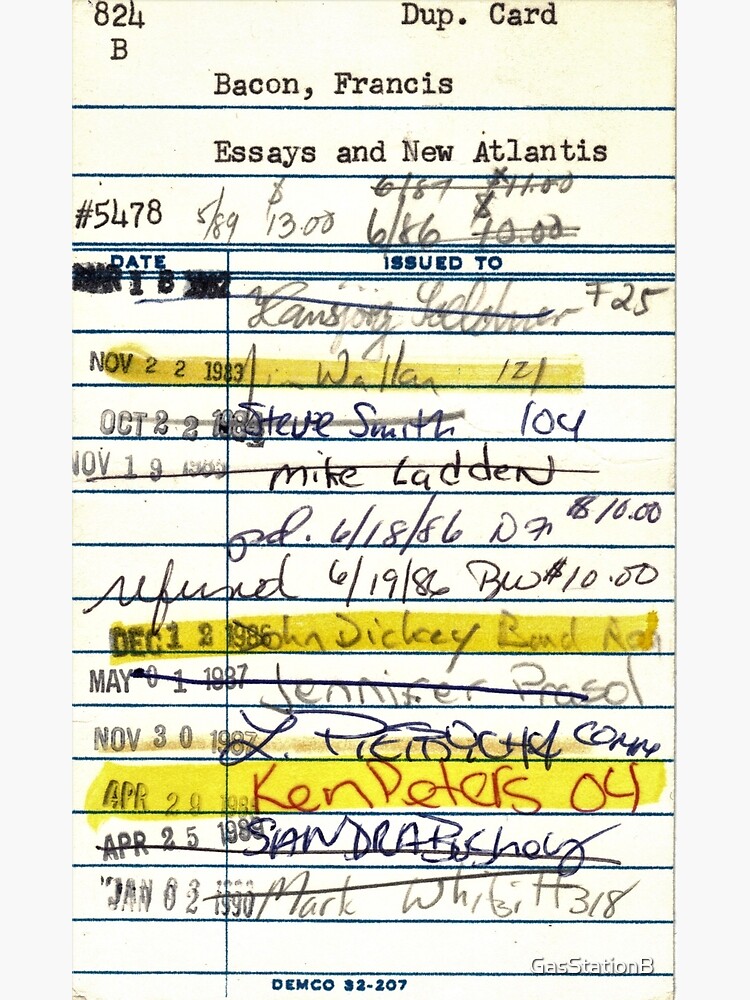 824 Dup. Card
B
Bacon, Francis
Essays and New Atlantis
6/87 $11.00
#5478 5/89 $13.00 6/86 $10.00
DATE ISSUED TO
MAR 18 Hansjörg 725
NOV 22 1983 Jim Wallan 121
OCT 22 Steve Smith 104
NOV 19 1985 Mike Ladden
pd. 6/18/86 $10.00
refused 6/19/86 BW $10.00
DEC 12 1986 John Dickey Band
MAY 01 1987 Jennifer Prasol
NOV 30 1987 L. comm
APR 29 Ken Peters 04
APR 25 SANDRA
JAN 03 1990 Mark 318
DEMCO 32-207
GasStationB